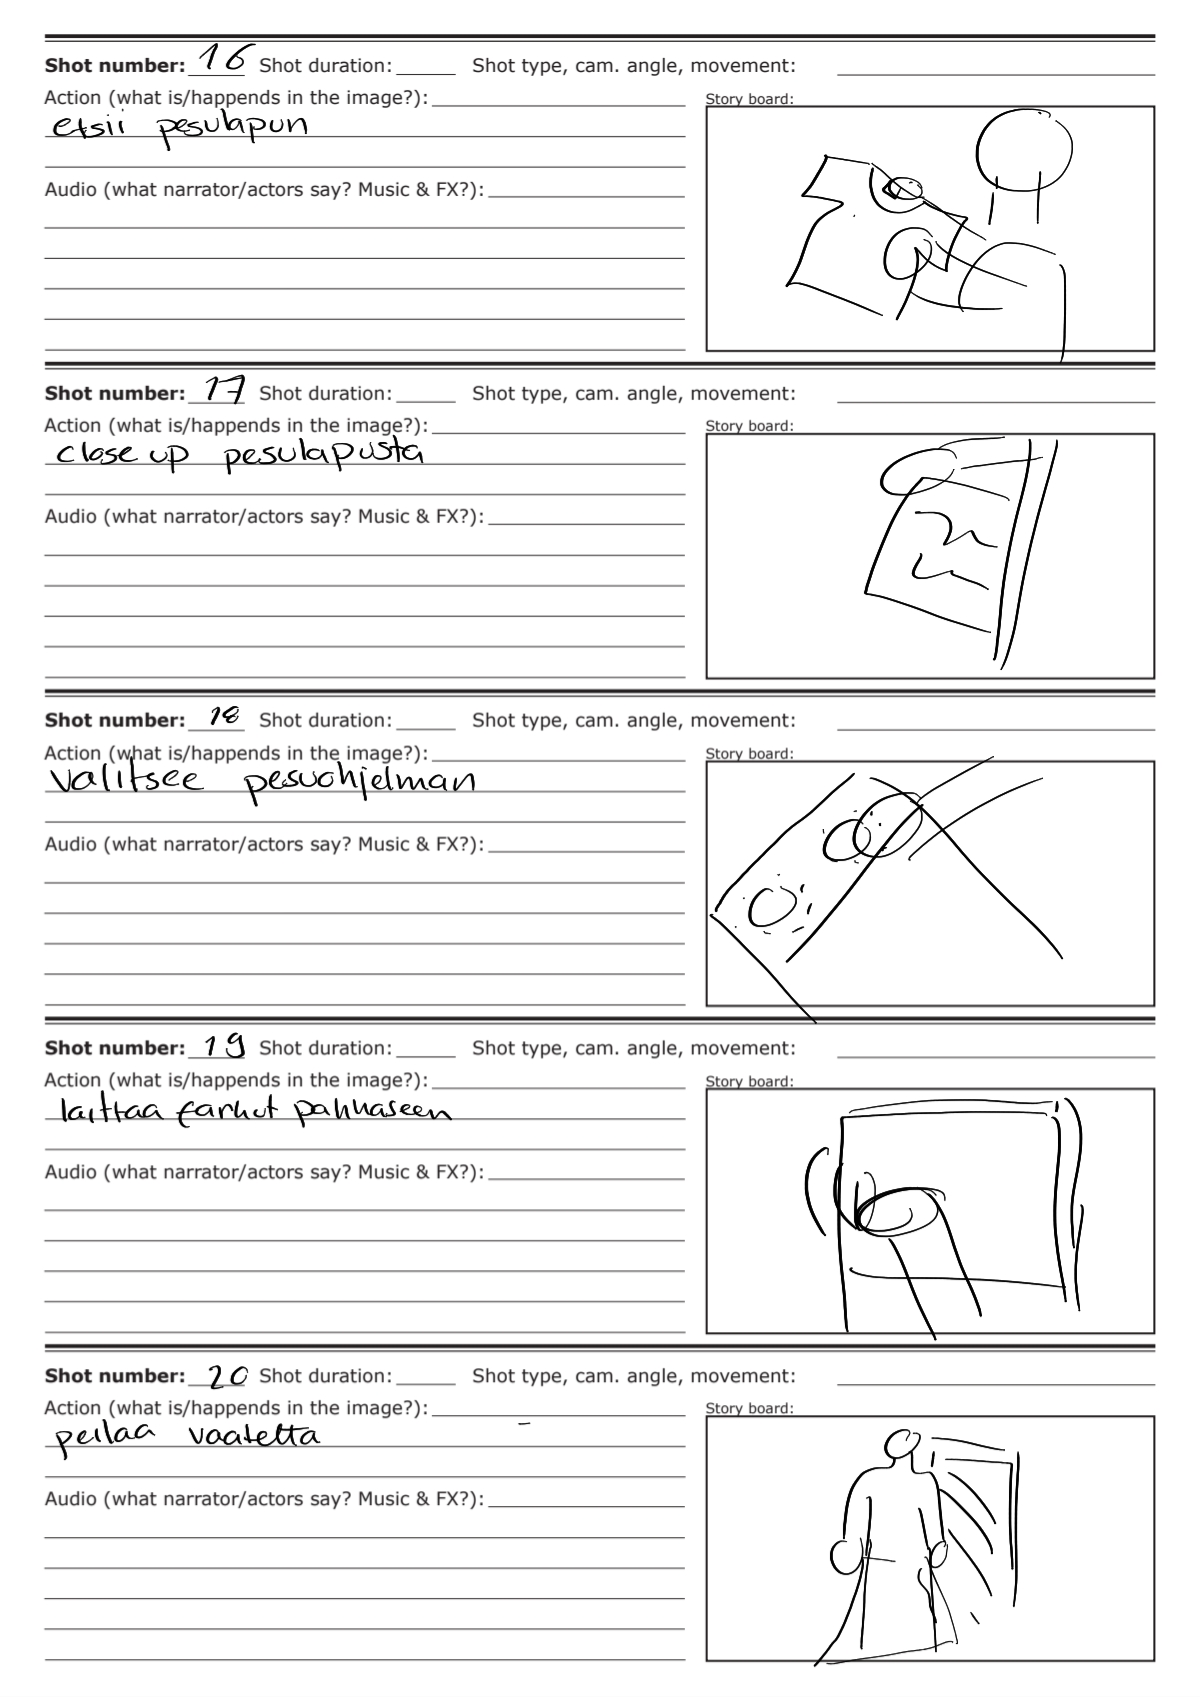 Shot number: 16 Shot duration: Shot type, cam. angle, movement:
Action (what is/happends in the image?):
Story board:
etsii pesulapun
Audio (what narrator/actors say? Music & FX?):
Shot number: 17 Shot duration: Shot type, cam. angle, movement:
Action (what is/happends in the image?):
Story board:
close up pesulapusta
Audio (what narrator/actors say? Music & FX?):
Shot number: 18 Shot duration: Shot type, cam. angle, movement:
Action (what is/happends in the image?):
Story board:
valitsee pesuohjelman
Audio (what narrator/actors say? Music & FX?):
Shot number: 19 Shot duration: Shot type, cam. angle, movement:
Action (what is/happends in the image?):
Story board:
laittaa farkut pakkaseen
Audio (what narrator/actors say? Music & FX?):
Shot number: 20 Shot duration: Shot type, cam. angle, movement:
Action (what is/happends in the image?):
Story board:
peilaa vaatetta
Audio (what narrator/actors say? Music & FX?):